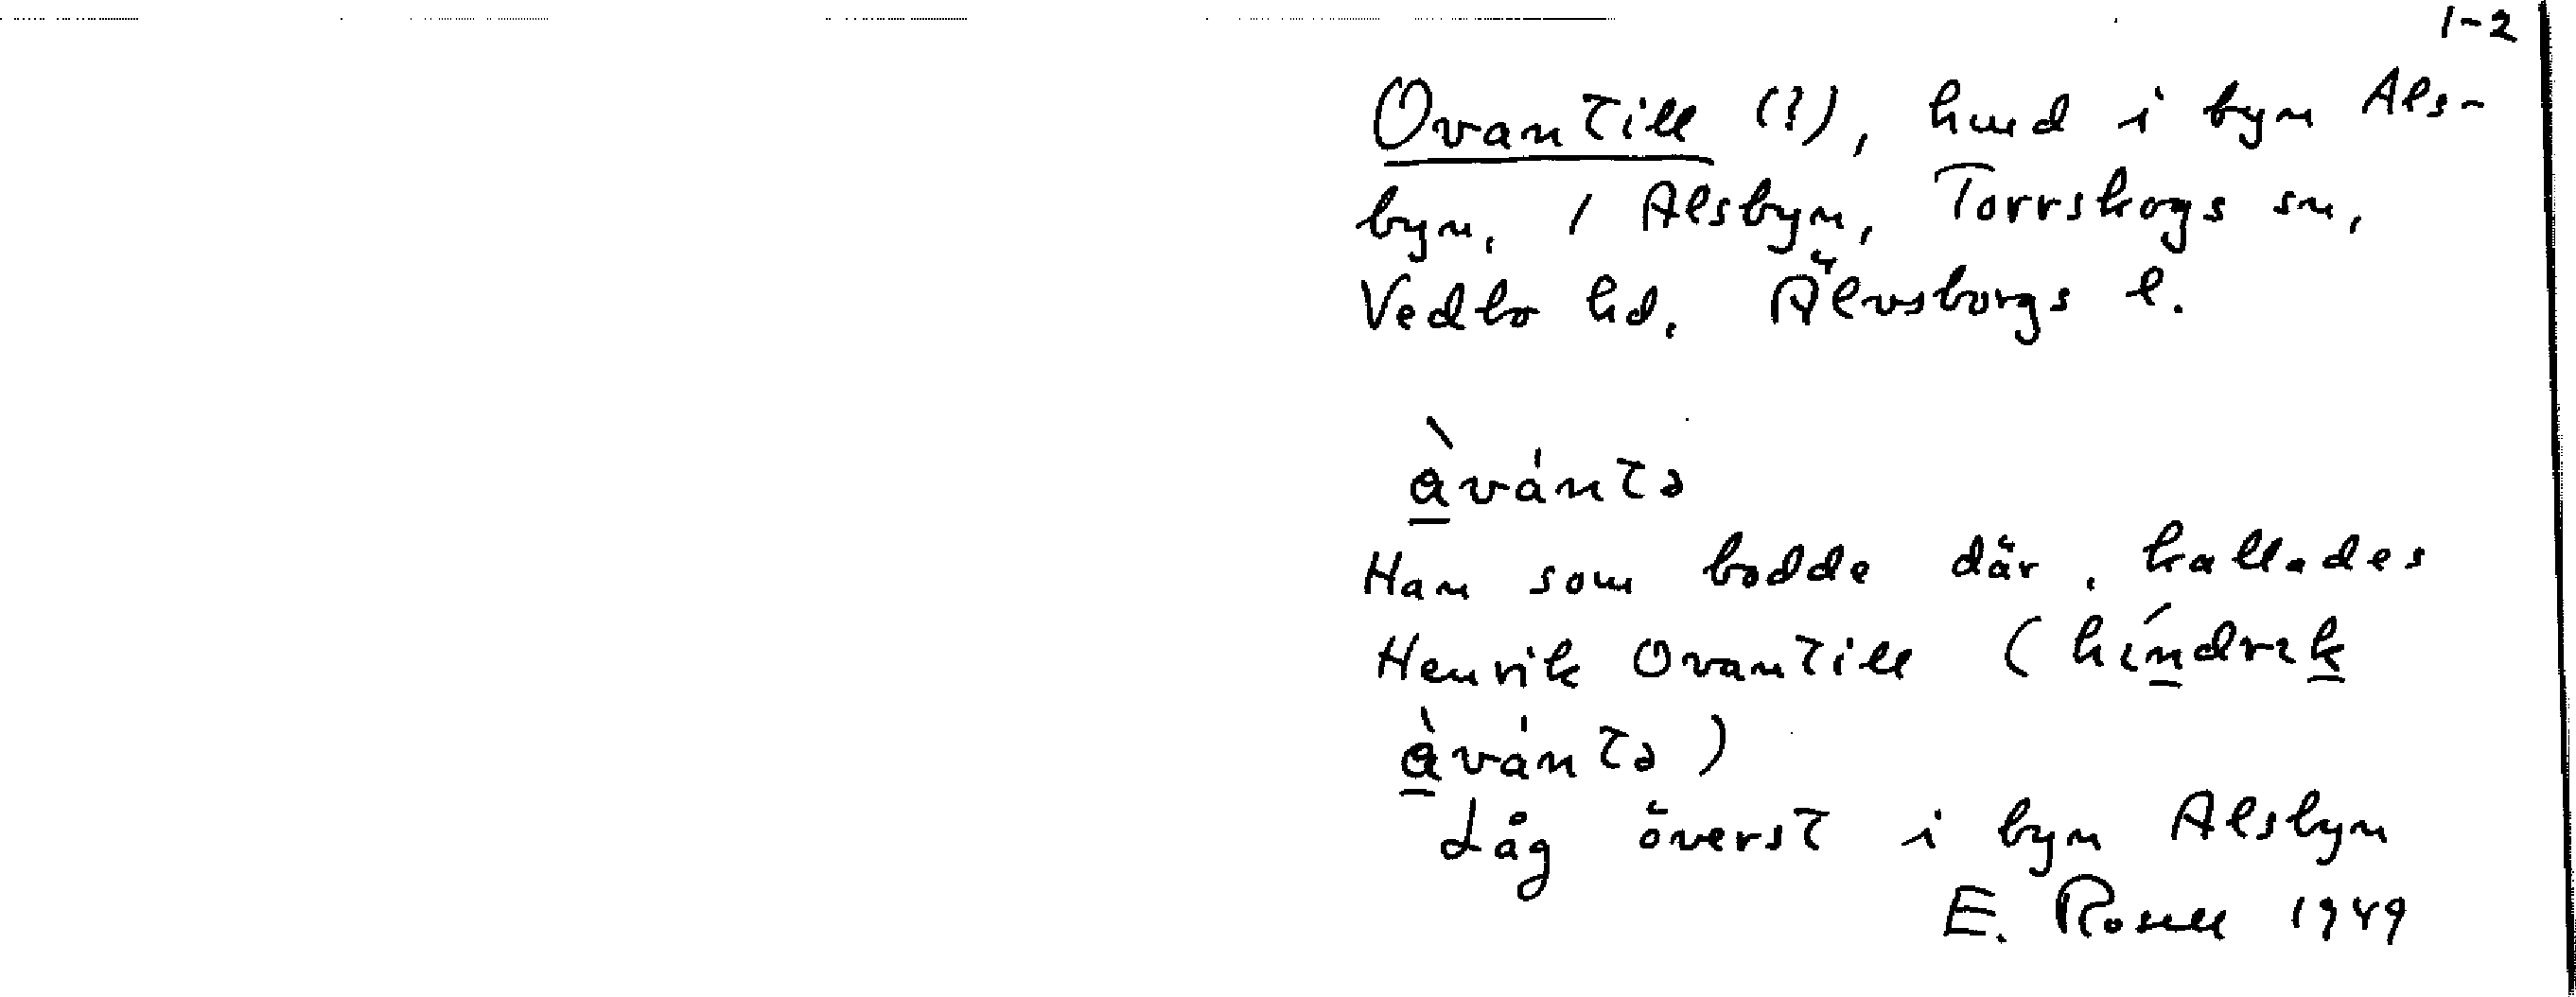 1-2
Ovantill (?), hmd i byn Als-
byn, 1 Alsbyn, Torrskogs sn,
Vedbo hd, Älvsborgs l.
àvántə
Han som bodde där, kallades
Henrik Ovantill (híndrık
àvántə)
Låg överst i byn Alsbyn
E. Rosell 1949